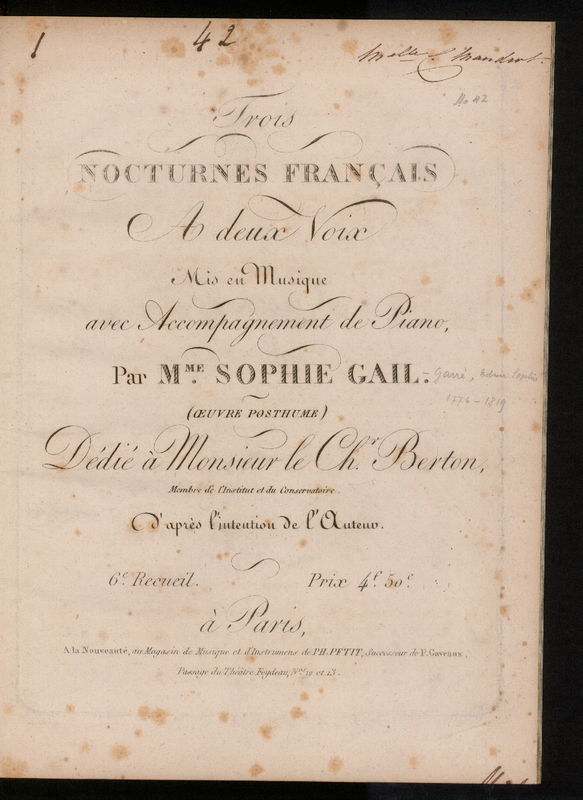 1
42
Melle
No 42
Trois
NOCTURNES FRANÇAIS
A deux Voix
Mis en Musique
avec Accompagnement de Piano,
Par MME. SOPHIE GAIL. - Garré, Edmée Sophie
1776 - 1819
(ŒUVRE POSTHUME)
Dédié à Monsieur le Ch.r Berton,
Membre de l'Institut et du Conservatoire.
D'après l'intention de l'Auteur.
6e Recueil. Prix 4f. 50c.
à Paris,
A la Nouveauté, au Magasin de Musique et d'Instrumens de PH. PETIT, Successeur de P. Gaveaux,
Passage du Théâtre Feydeau, Nos 12 et 13.